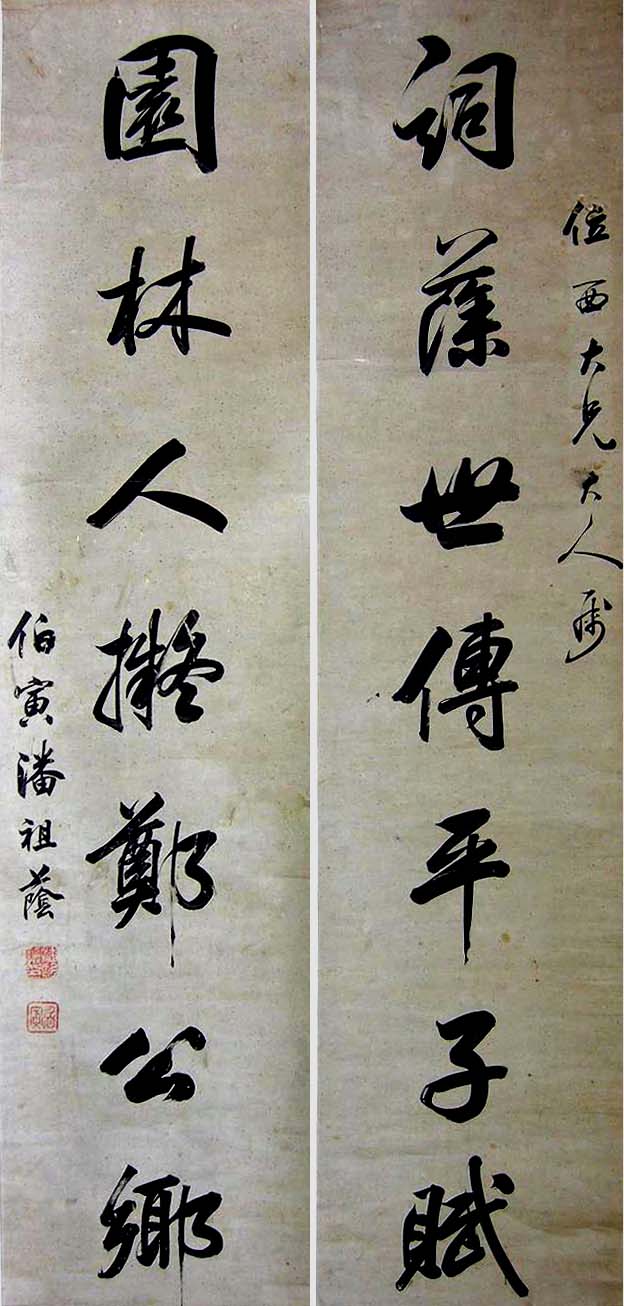 西大兄大人屬
詞藻世傳平子賦
園林人擬鄭公鄉
伯寅潘祖蔭